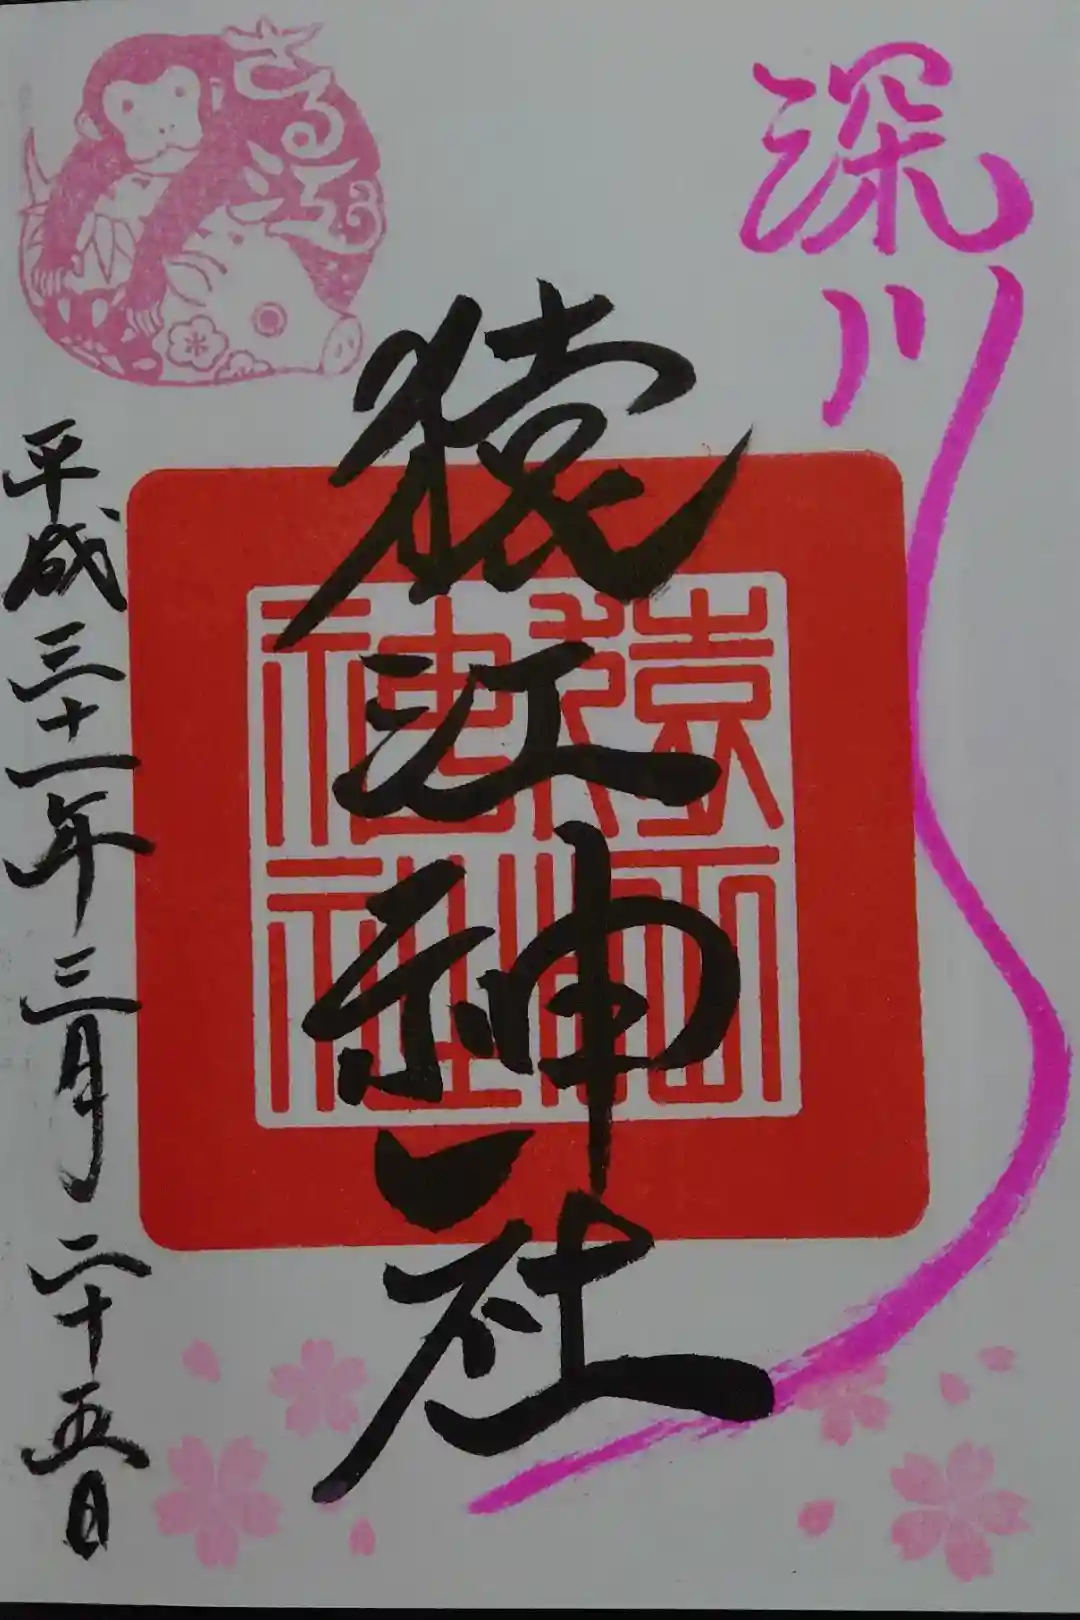 深川
猿江神社
猿江
神社
さる江
平成三十一年三月二十五日